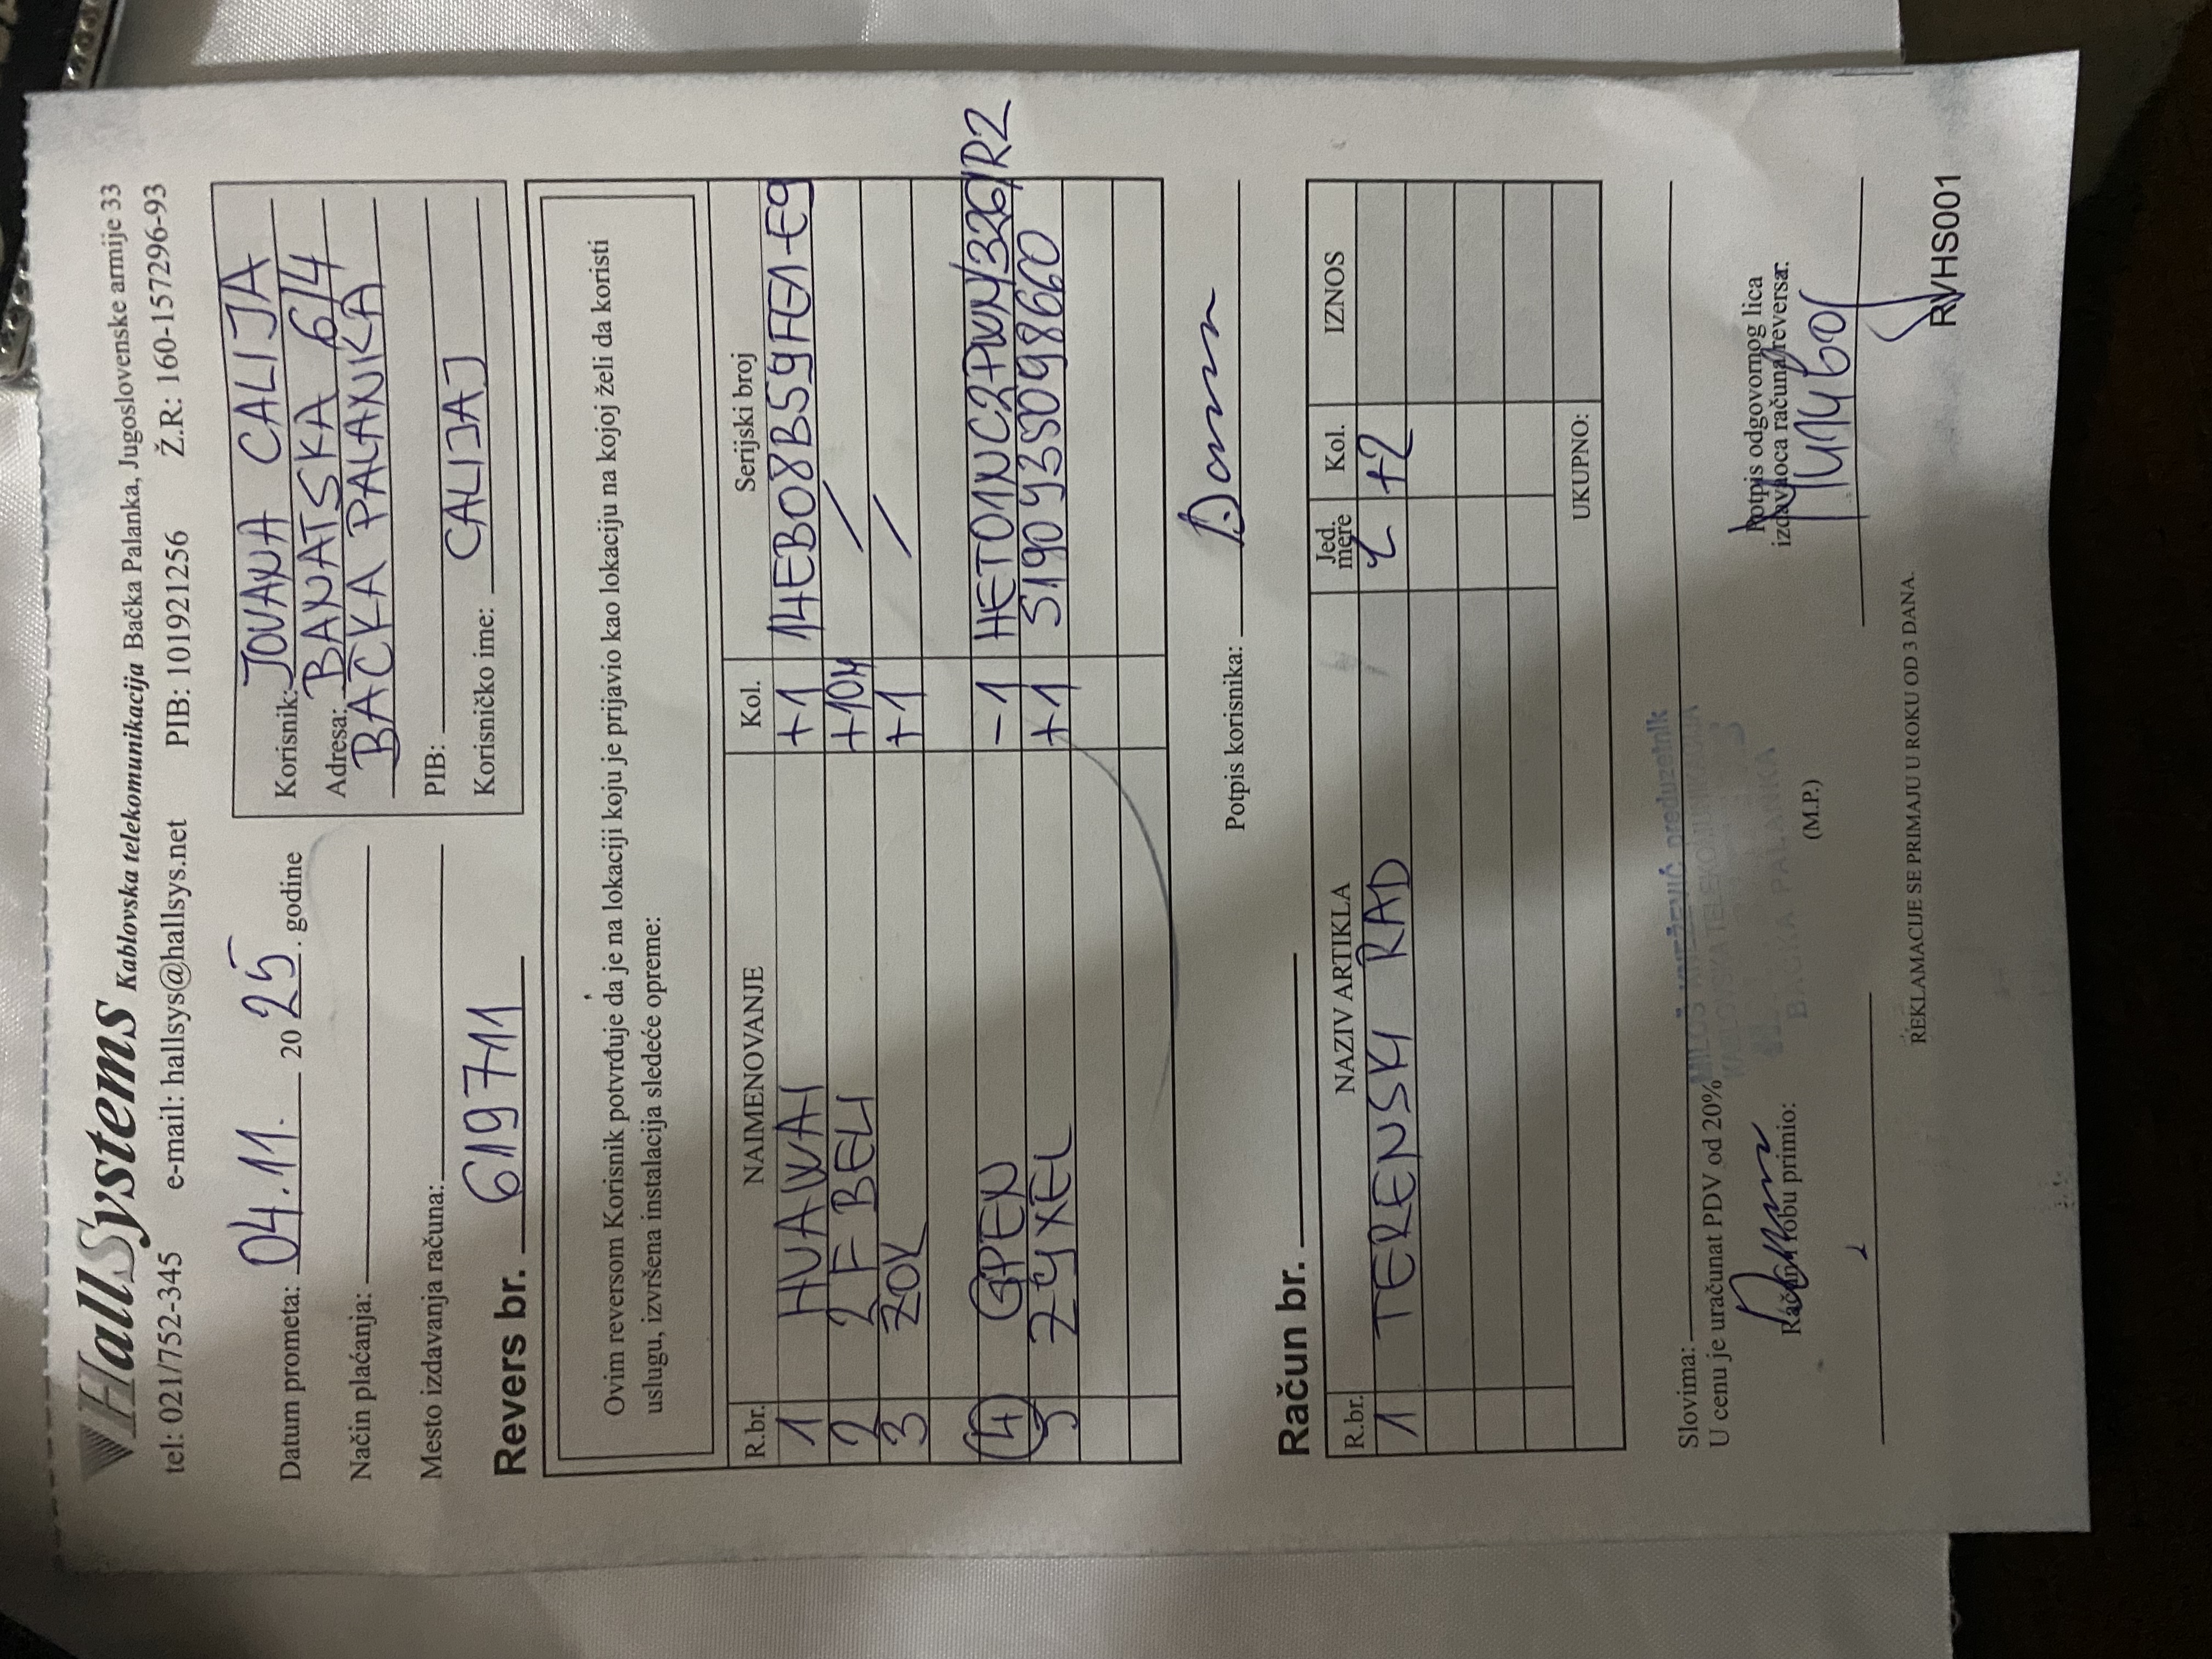 HallSystems Kablovska telekomunikacija Bačka Palanka, Jugoslovenske armije 33
tel: 021/752-345 e-mail: hallsys@hallsys.net PIB: 101921256 Ž.R: 160-157296-93
Datum prometa: 04.11. 2025. godine
Način plaćanja:
Mesto izdavanja računa:
Korisnik: JOVANA CALIJA
Adresa: BANATSKA 6/4
BAČKA PALANKA
PIB:
Korisničko ime: CALIJAJ
Revers br. 619711
Ovim reversom Korisnik potvrđuje da je na lokaciji koju je prijavio kao lokaciju na kojoj želi da koristi
uslugu, izvršena instalacija sledeće opreme:
R.br. NAIMENOVANJE Kol. Serijski broj
1 HUAWAI +1 14EB08B59FE1-E9
2 2F BELI +10M
3 ZOK +1
4 GPEN -1 HET01NC2PWN/326/R2
5 ZYXEL +1 S190Y35098660
Potpis korisnika:
Račun br.
R.br. NAZIV ARTIKLA Jed. mere Kol. IZNOS
1 TERENSKI RAD +2
UKUPNO:
Slovima:
U cenu je uračunat PDV od 20%
MILOŠ KNEŽEVIĆ preduzetnik
KABLOVSKA TELEKOMUNIKACIJA
BAČKA PALANKA
Račun i robu primio:
(M.P.)
Potpis odgovornog lica
izdavaoca računa/reversa:
REKLAMACIJE SE PRIMAJU U ROKU OD 3 DANA.
RVHS001